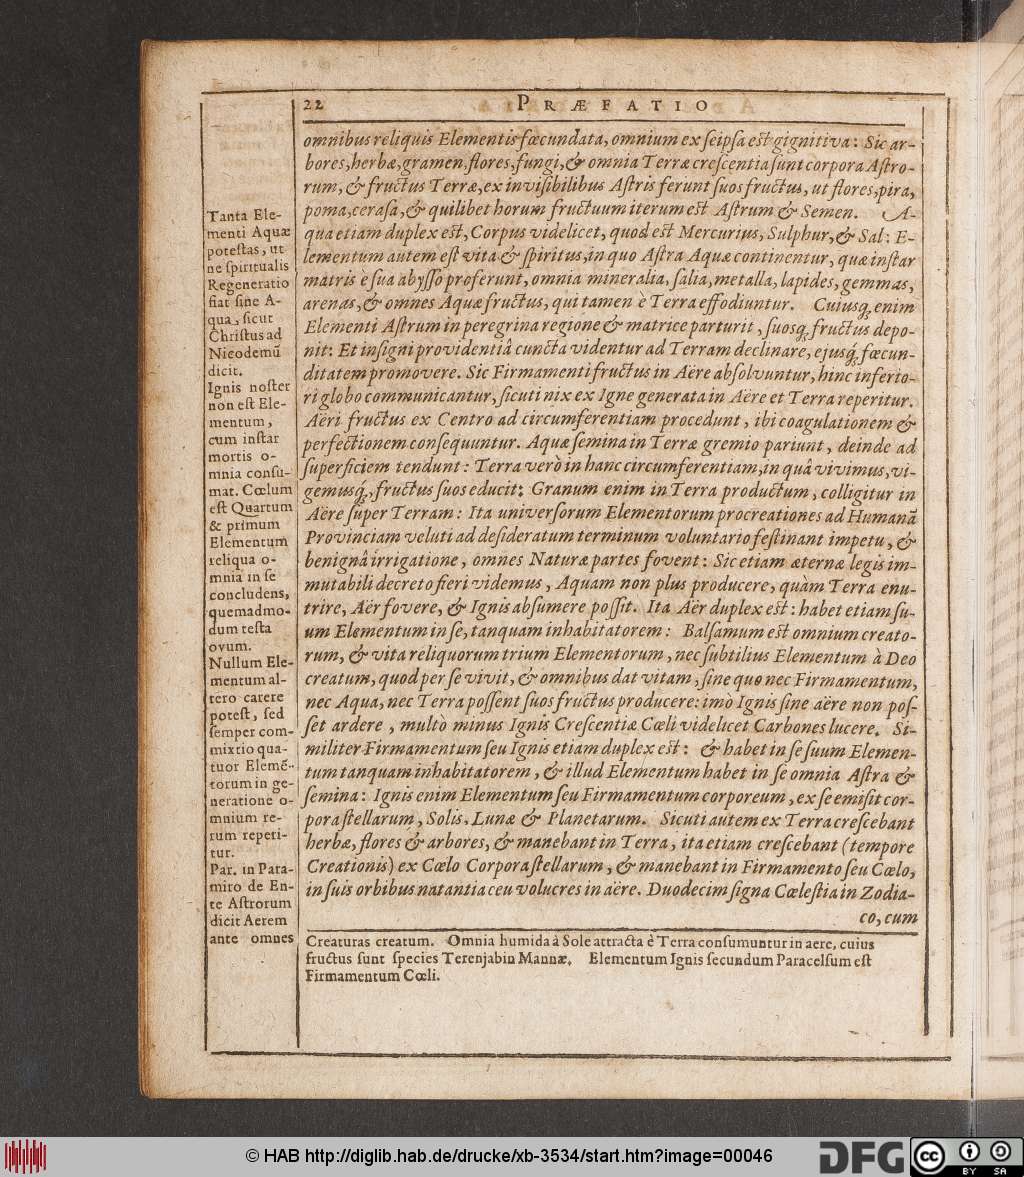 22 PRÆFATIO
omnibus reliquis Elementis fœcundata, omnium ex seipsa est gignitiva: Sic ar-
bores, herbæ, gramen, flores, fungi, & omnia Terræ crescentia sunt corpora Astro-
rum, & fructus Terræ, ex invisibilibus Astris ferunt suos fructus, ut flores, pira,
poma, cerasa, & quilibet horum fructuum iterum est Astrum & Semen. A-
qua etiam duplex est, Corpus videlicet, quod est Mercurius, Sulphur, & Sal: E-
lementum autem est vita & spiritus, in quo Astra Aquæ continentur, quæ instar
matris è sua abysso proferunt, omnia mineralia, salia, metalla, lapides, gemmas,
arenas, & omnes Aquæ fructus, qui tamen è Terra effodiuntur. Cuiusq; enim
Elementi Astrum in peregrina regione & matrice parturit, suosq; fructus depo-
nit: Et insigni providentiâ cuncta videntur ad Terram declinare, ejusq́; fœcun-
ditatem promovere. Sic Firmamenti fructus in Aëre absolvuntur, hinc inferio-
ri globo communicantur, sicuti nix ex Igne generata in Aëre et Terra reperitur.
Aëri fructus ex Centro ad circumferentiam procedunt, ibi coagulationem &
perfectionem consequuntur. Aquæ semina in Terræ gremio pariunt, deinde ad
superficiem tendunt: Terra verò in hanc circumferentiam, in quâ vivimus, vi-
gemusq́;, fructus suos educit: Granum enim in Terra productum, colligitur in
Aëre super Terram: Ita universorum Elementorum procreationes ad Humanã
Provinciam veluti ad desideratum terminum voluntario festinant impetu, &
benignâ irrigatione, omnes Naturæ partes fovent: Sic etiam æternæ legis im-
mutabili decreto fieri videmus, Aquam non plus producere, quàm Terra enu-
trire, Aër fovere, & Ignis absumere possit. Ita Aër duplex est: habet etiam su-
um Elementum in se, tanquam inhabitatorem: Balsamum est omnium creato-
rum, & vita reliquorum trium Elementorum, nec subtilius Elementum à Deo
creatum, quod per se vivit, & omnibus dat vitam, sine quo nec Firmamentum,
nec Aqua, nec Terra possent suos fructus producere: imò Ignis sine aëre non pos-
set ardere, multò minus Ignis Crescentiæ Cœli videlicet Carbones lucere. Si-
militer Firmamentum seu Ignis etiam duplex est: & habet in se suum Elemen-
tum tanquam inhabitatorem, & illud Elementum habet in se omnia Astra &
semina: Ignis enim Elementum seu Firmamentum corporeum, ex se emisit cor-
pora stellarum, Solis, Lunæ & Planetarum. Sicuti autem ex Terra crescebant
herbæ, flores & arbores, & manebant in Terra, ita etiam crescebant (tempore
Creationis) ex Cœlo Corpora stellarum, & manebant in Firmamento seu Cœlo,
in suis orbibus natantia ceu volucres in aëre. Duodecim signa Cœlestia in Zodia-
co, cum
Tanta Ele-
menti Aquæ
potestas, ut
ne spiritualis
Regeneratio
fiat sine A-
qua, sicut
Christus ad
Nicodemũ
dicit.
Ignis noster
non est Ele-
mentum,
cum instar
mortis o-
mnia consu-
mat. Cœlum
est Quartum
& primum
Elementum
reliqua o-
mnia in se
concludens,
quemadmo-
dum testa
ovum.
Nullum Ele-
mentum al-
tero carere
potest, sed
semper com-
mixtio qua-
tuor Elemẽ-
torum in ge-
neratione o-
mnium re-
rum reperi-
tur.
Par. in Para-
miro de En-
te Astrorum
dicit Aerem
ante omnes
Creaturas creatum. Omnia humida à Sole attracta è Terra consumuntur in aere, cuius
fructus sunt species Terenjabin Mannæ. Elementum Ignis secundum Paracelsum est
Firmamentum Cœli.
© HAB http://diglib.hab.de/drucke/xb-3534/start.htm?image=00046
DFG
cc BY SA